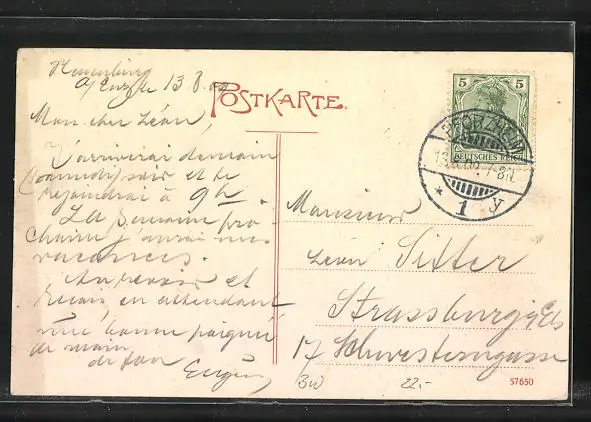 Neuenbürg
a/Enz, le 13.8.09
POSTKARTE.
Mon cher Léon,
J'arriverai demain
(samedi) soir et te
rejoindrai à 9h
La Semaine pro-
chaine j'aurai mes
vacances.
Au revoir et
reçois en attendant
une bonne poignée
de main
de ton
Eugène
5 5
DEUTSCHES REICH
PFORZHEIM
7-8N.
* 1 y
Monsieur
Léon Sitter
Strassburg i/Els
17 Schwesterngasse
3w
22.-
57650